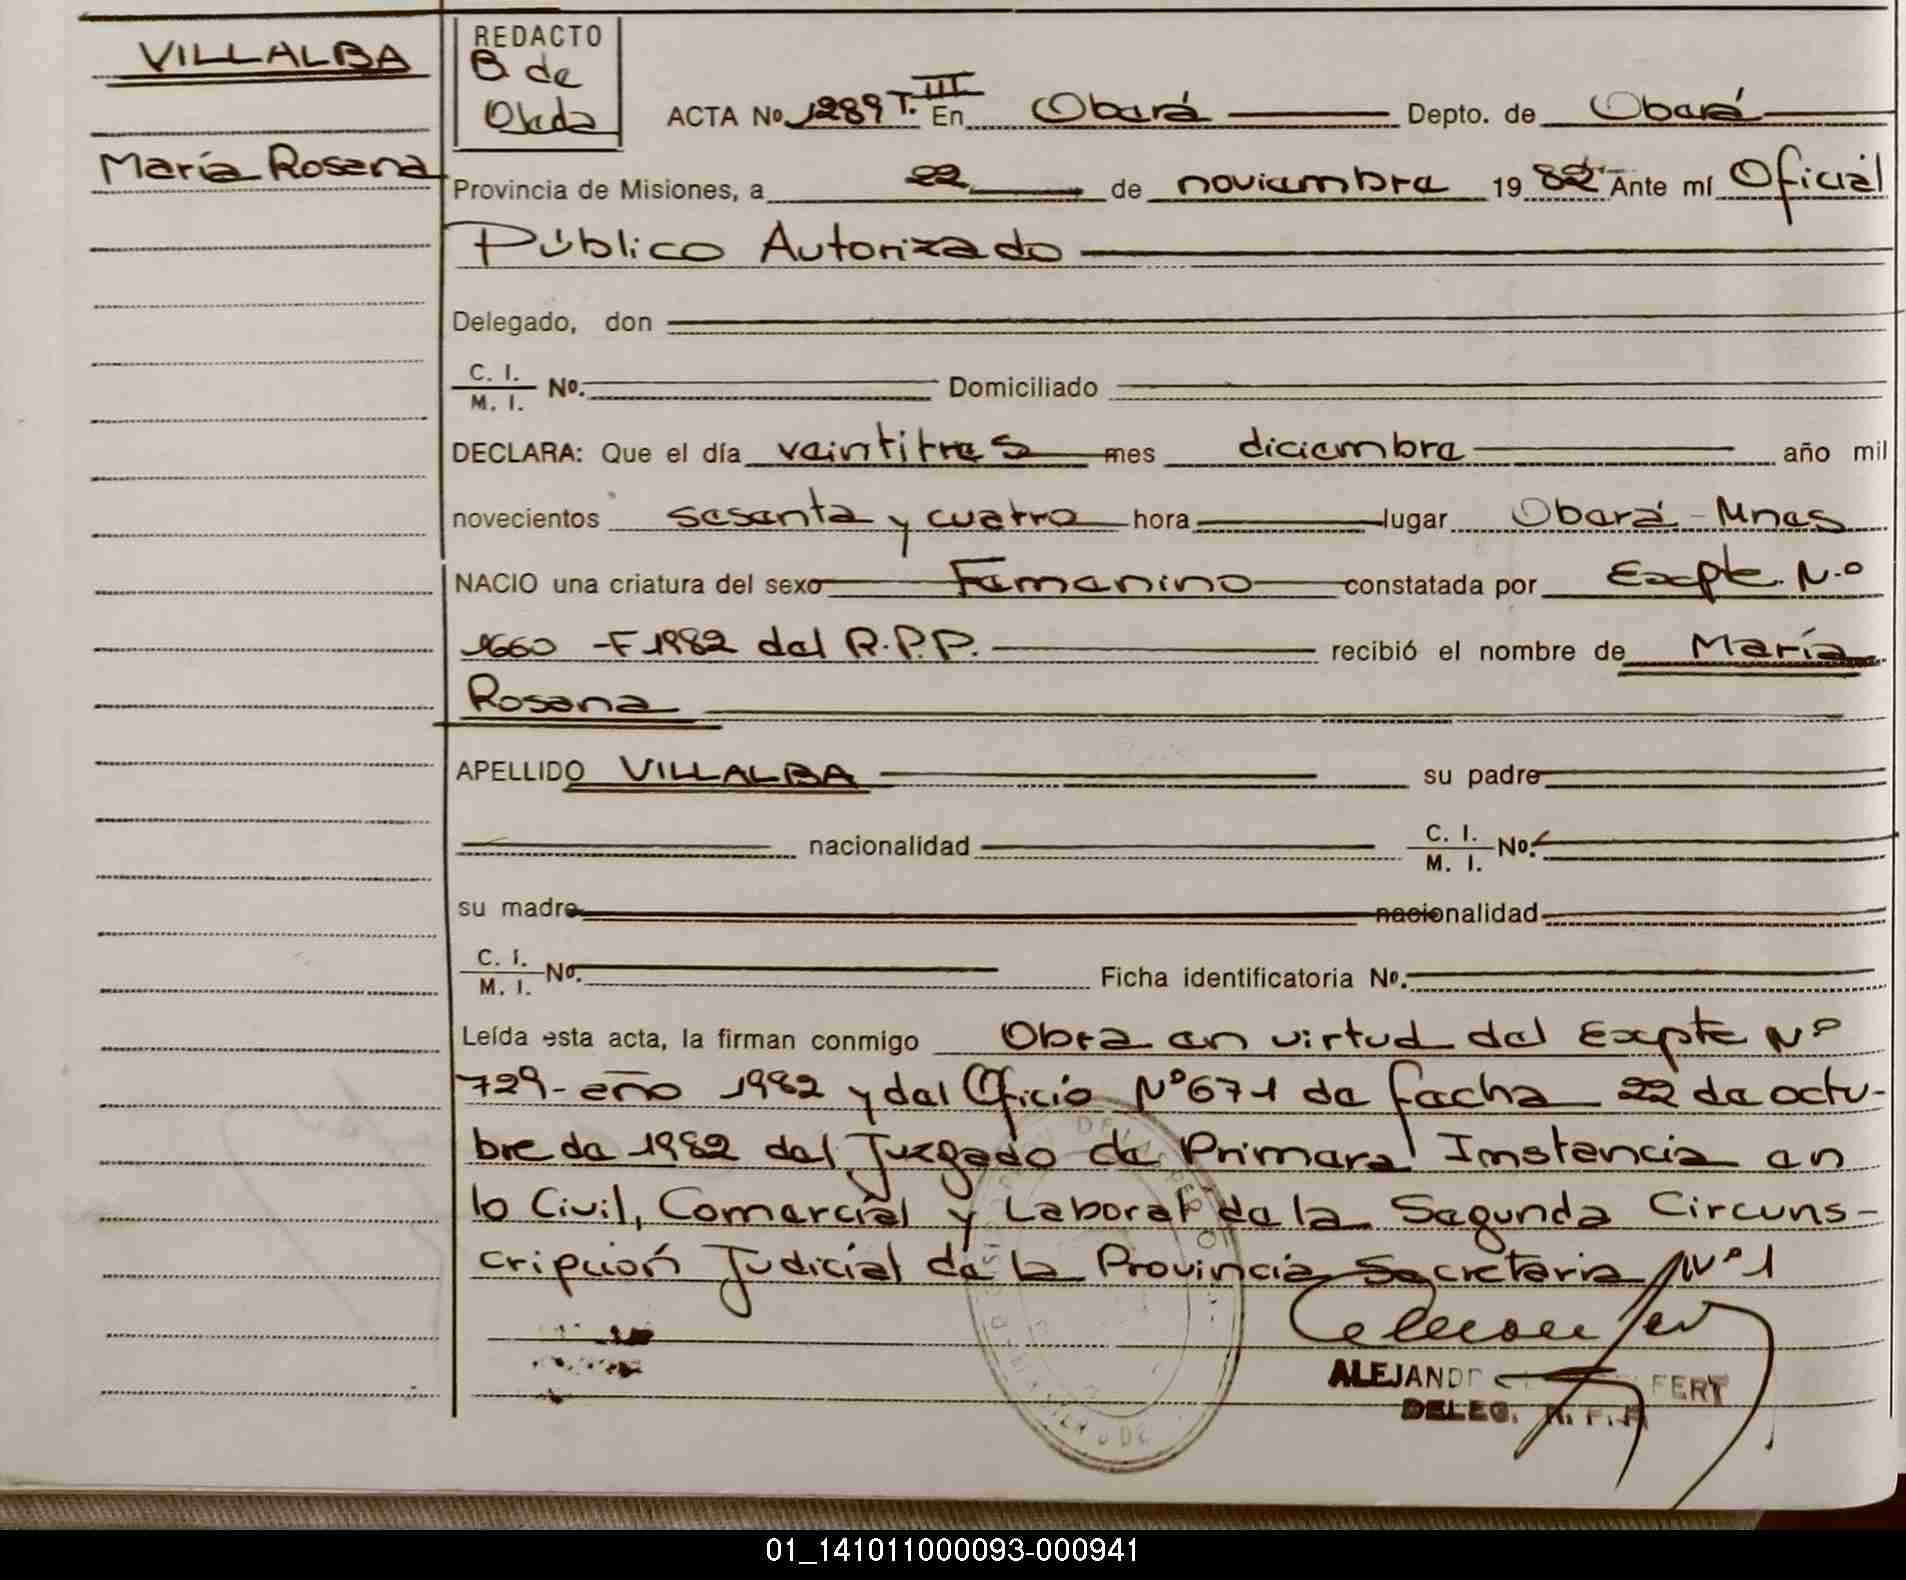 VILLALBA
María Rosana
REDACTO
B de
Ojeda
ACTA No. 1289 T. III En Oberá Depto. de Oberá
Provincia de Misiones, a 22 de noviembre 19 82 Ante mí Oficial
Público Autorizado
Delegado, don
C. I.
M. I. No. Domiciliado
DECLARA: Que el día veintitres mes diciembre año mil
novecientos sesenta y cuatro hora lugar Oberá - Mnes
NACIO una criatura del sexo Femenino constatada por Expte. N.o
1660 - F 1982 del R.P.P. recibió el nombre de María
Rosana
APELLIDO VILLALBA su padre
nacionalidad C. I.
M. I. No.
su madre nacionalidad
C. I.
M. I. No. Ficha identificatoria No.
Leída esta acta, la firman conmigo Obra en virtud del Expte Nº
729 - año 1982 y del Oficio Nº 671 de fecha 22 de octu-
bre de 1982 del Juzgado de Primera Instancia en
lo Civil, Comercial y Laboral de la Segunda Circuns-
cripción Judicial de la Provincia Secretaria Nº 1
FERT
DELEG.
01_141011000093-000941